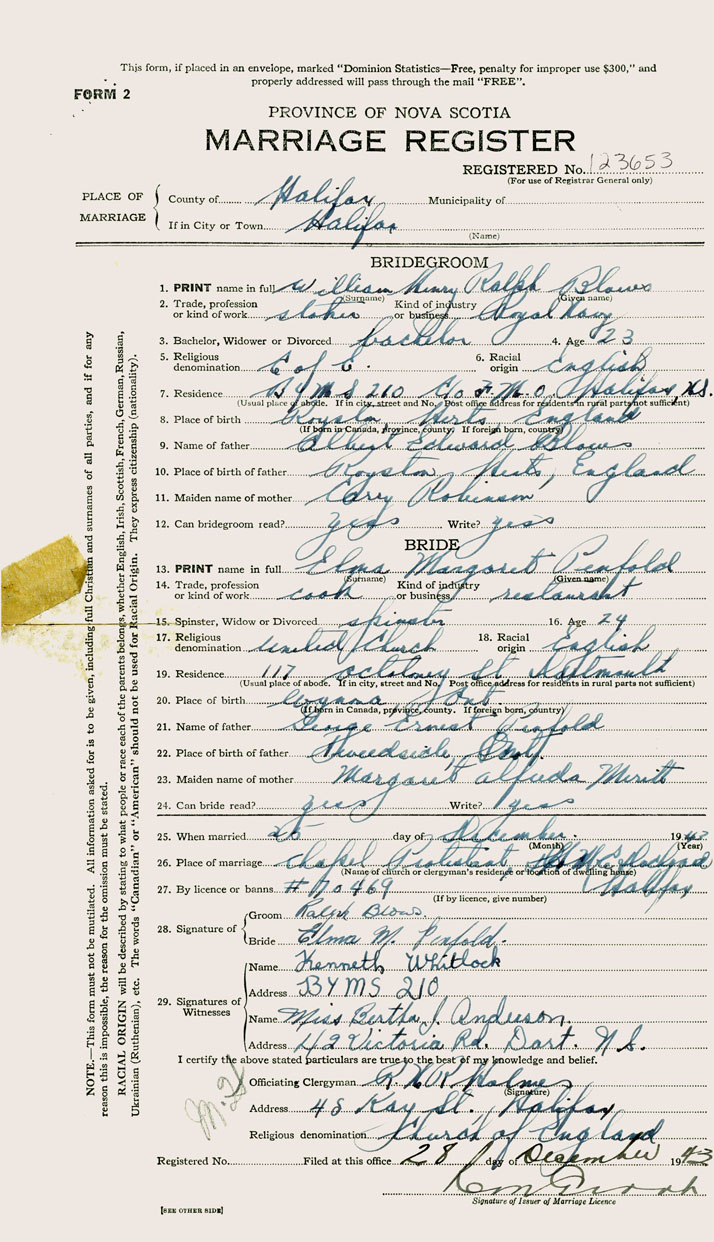 This form, if placed in an envelope, marked "Dominion Statistics—Free, penalty for improper use $300," and
properly addressed will pass through the mail "FREE".
FORM 2
PROVINCE OF NOVA SCOTIA
MARRIAGE REGISTER
REGISTERED No. 123653
(For use of Registrar General only)
PLACE OF MARRIAGE
County of Halifax Municipality of
If in City or Town Halifax
(Name)
BRIDEGROOM
1. PRINT name in full William Henry Ralph Blows
(Surname) (Given name)
2. Trade, profession or kind of work stoker Kind of industry or business Royal Navy
3. Bachelor, Widower or Divorced bachelor 4. Age 23
5. Religious denomination C of E. 6. Racial origin English
7. Residence BYMS 210 C/o F.M.O. Halifax, N.S.
(Usual place of abode. If in city, street and No. Post office address for residents in rural parts not sufficient)
8. Place of birth Royston Herts England
(If born in Canada, province, county. If foreign born, country)
9. Name of father Albert Edward Blows
10. Place of birth of father Royston, Herts, England
11. Maiden name of mother Robinson
12. Can bridegroom read? yess Write? yess
BRIDE
13. PRINT name in full Elma Margaret Penfold
(Surname) (Given name)
14. Trade, profession or kind of work cook Kind of industry or business restaurant
15. Spinster, Widow or Divorced spinster 16. Age 24
17. Religious denomination United Church 18. Racial origin English
19. Residence 117 St. Dartmouth
(Usual place of abode. If in city, street and No. Post office address for residents in rural parts not sufficient)
20. Place of birth Ont.
(If born in Canada, province, county. If foreign born, country)
21. Name of father George Ernest Penfold
22. Place of birth of father Tweedside, Ont.
23. Maiden name of mother Margaret Alfreda Meritt
24. Can bride read? yess Write? yess
25. When married 25 day of December 1943
(Month) (Year)
26. Place of marriage Chapel Protestant H.M.C. Dockyard
(Name of church or clergyman's residence or location of dwelling house)
Halifax
27. By licence or banns #70469
(If by licence, give number)
28. Signature of
Groom Ralph Blows.
Bride Elma M. Penfold.
29. Signatures of Witnesses
Name Kenneth Whitlock
Address BYMS 210
Name Miss Bertha J. Anderson.
Address 42 Victoria Rd. Dart. N.S.
I certify the above stated particulars are true to the best of my knowledge and belief.
Officiating Clergyman Holmes
(Signature)
Address 48 Kay St., Halifax
Religious denomination Church of England
Registered No. Filed at this office 28 day of December 1943
Signature of Issuer of Marriage Licence
[SEE OTHER SIDE]
NOTE.—This form must not be mutilated. All information asked for is to be given, including full Christian and surnames of all parties, and if for any
reason this is impossible, the reason for the omission must be stated.
RACIAL ORIGIN will be described by stating to what people or race each of the parents belongs, whether English, Irish, Scottish, French, German, Russian,
Ukrainian (Ruthenian), etc. The words "Canadian" or "American" should not be used for Racial Origin. They express citizenship (nationality).